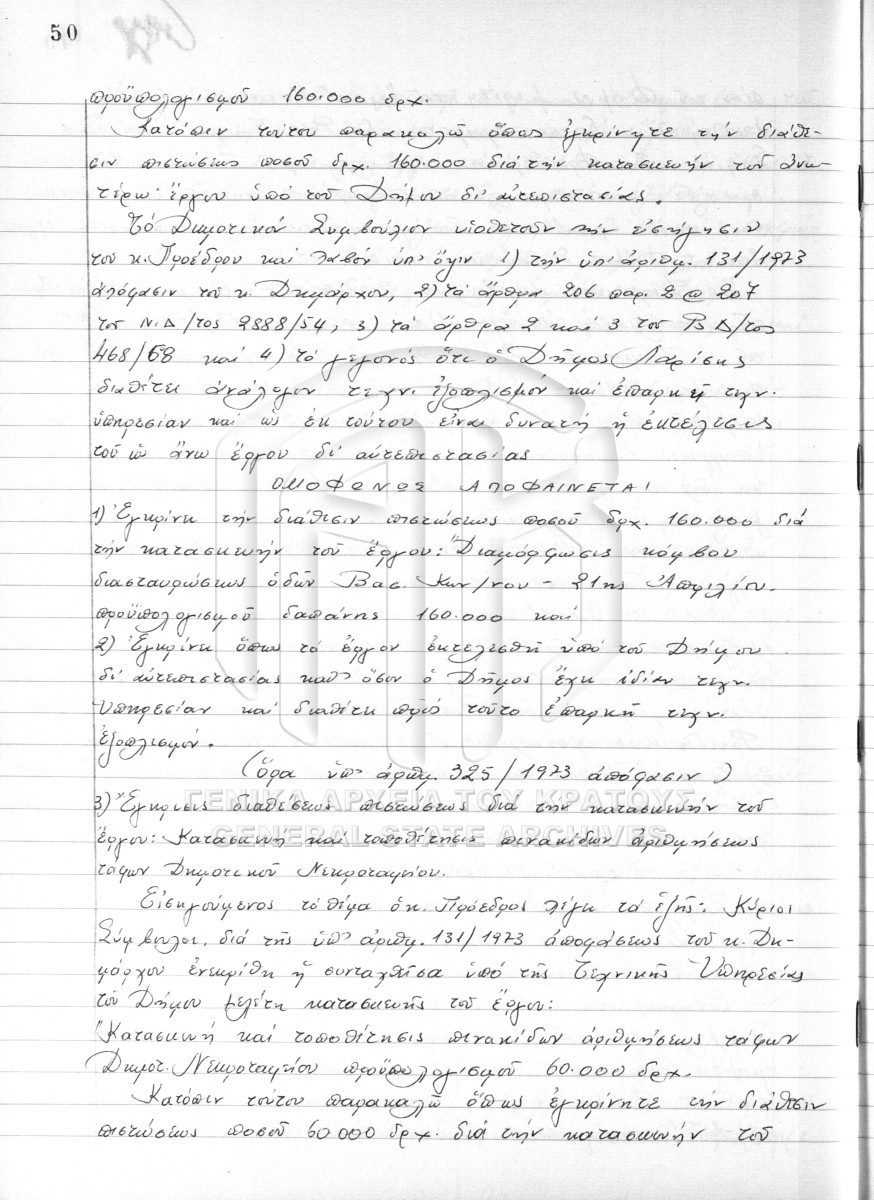 50
προϋπολογισμοῦ 160.000 δρχ.
Κατόπιν τούτου παρακαλῶ ὅπως ἐγκρίνητε τήν διάθε-
σιν πιστώσεως ποσοῦ δρχ. 160.000 διά τήν κατασκευήν τοῦ ἀνω-
τέρω ἔργου ὑπό τοῦ Δήμου δι' αὐτεπιστασίας.
Τό Δημοτικόν Συμβούλιον υἱοθετοῦν τήν εἰσήγησιν
τοῦ κ. Προέδρου καί λαβόν ὑπ' ὄψιν 1) τήν ὑπ' ἀριθμ. 131/1973
ἀπόφασιν τοῦ κ. Δημάρχου, 2) τά ἄρθρα 206 παρ. 2 @ 207
τοῦ Ν.Δ/τος 2888/54, 3) τά ἄρθρα 2 καί 3 τοῦ Β Δ/τος
468/68 καί 4) τό γεγονός ὅτι ὁ Δῆμος Λαρίσης
διαθέτει ἀνάλογον τεχν. ἐξοπλισμόν καί ἐπαρκῆ τεχν.
ὑπηρεσίαν καί ὡς ἐκ τούτου εἶναι δυνατή ἡ ἐκτέλεσις
τοῦ ὡς ἄνω ἔργου δι' αὐτεπιστασίας
ΟΜΟΦΩΝΩΣ ΑΠΟΦΑΙΝΕΤΑΙ
1) Ἐγκρίνει τήν διάθεσιν πιστώσεως ποσοῦ δρχ. 160.000 διά
τήν κατασκευήν τοῦ ἔργου: "Διαμόρφωσις κόμβου
διασταυρώσεως ὁδῶν Βασ. Κων/νου - 21ης Ἀπριλίου.
προϋπολογισμοῦ δαπάνης 160.000 καί
2) Ἐγκρίνει ὅπως τό ἔργον ἐκτελεσθῆ ὑπό τοῦ Δήμου
δι' αὐτεπιστασίας καθ' ὅσον ὁ Δῆμος ἔχει ἰδίαν τεχν.
Ὑπηρεσίαν καί διαθέτει πρός τοῦτο ἐπαρκῆ τεχν.
ἐξοπλισμόν.
(ὅρα ὑπ' ἀριθμ. 325/1973 ἀπόφασιν)
ΓΕΝΙΚΑ ΑΡΧΕΙΑ ΤΟΥ ΚΡΑΤΟΥΣ
3) Ἔγκρισις διαθέσεως πιστώσεως διά τήν κατασκευήν τοῦ
GENERAL STATE ARCHIVES
ἔργου: Κατασκευή καί τοποθέτησις πινακίδων ἀριθμήσεως
τάφων Δημοτικοῦ Νεκροταφείου.
Εἰσηγούμενος τό θέμα ὁ κ. Πρόεδρος λέγει τά ἑξῆς: Κύριοι
Σύμβουλοι, διά τῆς ὑπ' ἀριθμ. 131/1973 ἀποφάσεως τοῦ κ. Δη-
μάρχου ἐνεκρίθη ἡ συνταχθεῖσα ὑπό τῆς Τεχνικῆς Ὑπηρεσίας
τοῦ Δήμου μελέτη κατασκευῆς τοῦ ἔργου:
"Κατασκευή καί τοποθέτησις πινακίδων ἀριθμήσεως τάφων
Δημοτ. Νεκροταφείου προϋπολογισμοῦ 60.000 δρχ.
Κατόπιν τούτου παρακαλῶ ὅπως ἐγκρίνητε τήν διάθεσιν
πιστώσεως ποσοῦ 60.000 δρχ. διά τήν κατασκευήν τοῦ